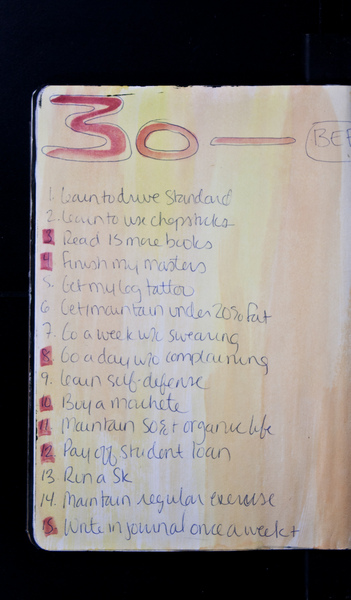 30 — BEF
1. Learn to drive Standard
2. Learn to use chopsticks
3. Read 15 more books
4. Finish my masters
5. Get my leg tattoo
6. Get/maintain under 20% fat
7. Go a week w/o swearing
8. Go a day w/o complaining
9. Learn self-defense
10. Buy a machete
11. Maintain 50%+ organic life
12. Pay off student loan
13. Run a 5k
14. Maintain regular exercise
15. Write in journal once a week +